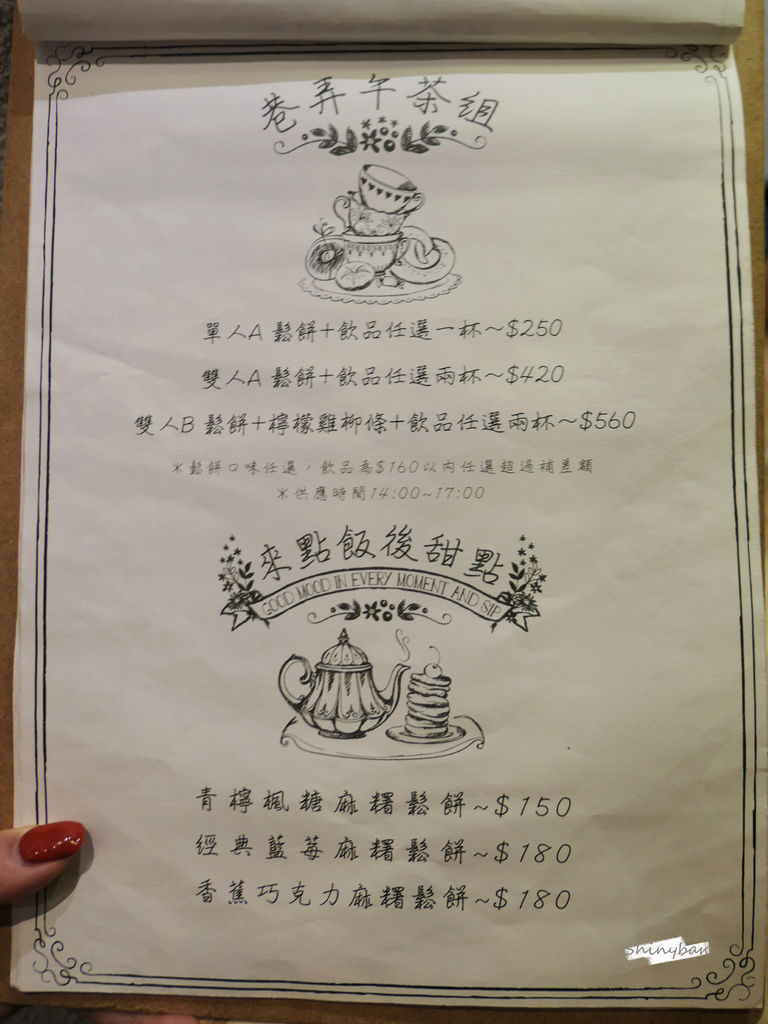 巷弄午茶組
單人A 鬆餅+飲品任選一杯~$250
雙人A 鬆餅+飲品任選兩杯~$420
雙人B 鬆餅+檸檬雞柳條+飲品任選兩杯~$560
*鬆餅口味任選,飲品為$160以內任選超過補差額
*供應時間14:00~17:00
來點飯後甜點
GOOD MOOD IN EVERY MOMENT AND SIP
青檸楓糖麻糬鬆餅~$150
經典藍莓麻糬鬆餅~$180
香蕉巧克力麻糬鬆餅~$180
shinyban